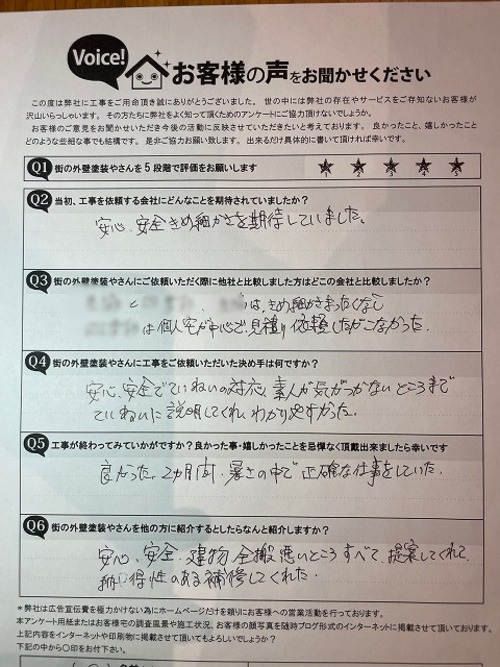 Voice!
お客様の声をお聞かせください
この度は弊社に工事をご用命頂き誠にありがとうございました。世の中には弊社の存在やサービスをご存知ないお客様が
沢山いらっしゃいます。その方たちに弊社をよく知って頂くためのアンケートにご協力頂けないでしょうか。
お客様のご意見をお聞かせいただき今後の活動に反映させていただきたいと考えております。良かったこと、嬉しかったこと
どのような些細な事でも結構です。是非ご協力お願い致します。出来るだけ具体的に書いて頂ければ幸いです。
Q1 街の外壁塗装やさんを5段階で評価をお願いします
1 2 3 4 5
Q2 当初、工事を依頼する会社にどんなことを期待されていましたか?
安心、安全きめ細かさを期待していました。
Q3 街の外壁塗装やさんにご依頼いただく際に他社と比較しました方はどこの会社と比較しましたか?
と は、きめ細かさまったくなし
は個人宅が中心で、見積り依頼したがこなかった。
Q4 街の外壁塗装やさんに工事をご依頼いただいた決め手は何ですか?
安心、安全でていねいの対応、素人が気がつかないところまで
ていねいに説明してくれ、わかりやすかった。
Q5 工事が終わってみていかがですか?良かった事・嬉しかったことを忌憚なく頂戴出来ましたら幸いです
良かった。2カ月間、暑さの中で正確な仕事をしていた。
Q6 街の外壁塗装やさんを他の方に紹介するとしたらなんと紹介しますか?
安心、安全、建物全搬悪いところすべて、提案してくれて、
得性のある補修してくれた。
*弊社は広告宣伝費を極力かけない為にホームページだけを頼りにお客様への営業活動を行っております。
本アンケート用紙またはお客様宅の調査風景や施工状況、お客様の顔写真を随時ブログ形式のインターネットに掲載させて頂いております。
上記内容をインターネットや印刷物に掲載させて頂いてもよろしいでしょうか?
下記の中から〇印をお付下さい。